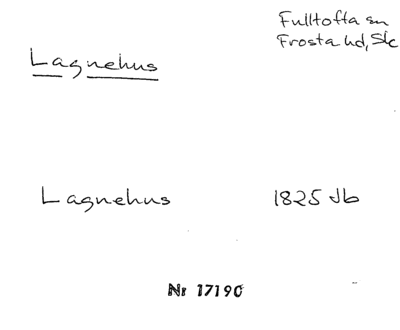 Fulltofta sn
Frosta hd, Sk
Lagnehus
Lagnehus 1825 Jb
Nr 17190